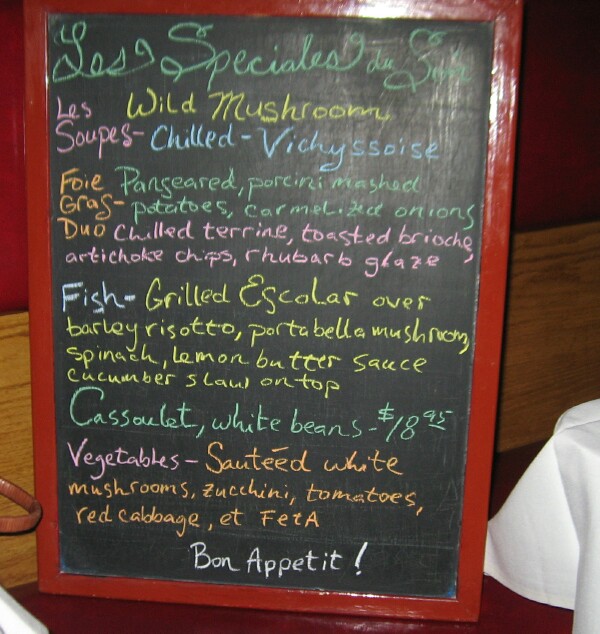 Les Speciales du Soir
Les Wild Mushroom
Soupes- Chilled - Vichyssoise
Foie Panseared, porcini mashed
Gras- potatoes, carmelized onions
Duo Chilled terrine, toasted brioche,
artichoke chips, rhubarb glaze
Fish- Grilled Escolar over
barley risotto, portabella mushroom,
spinach, lemon butter sauce
cucumber slaw on top
Cassoulet, white beans - $18.95
Vegetables - Sauteéd white
mushrooms, zucchini, tomatoes,
red cabbage, et FetA
Bon Appetit!